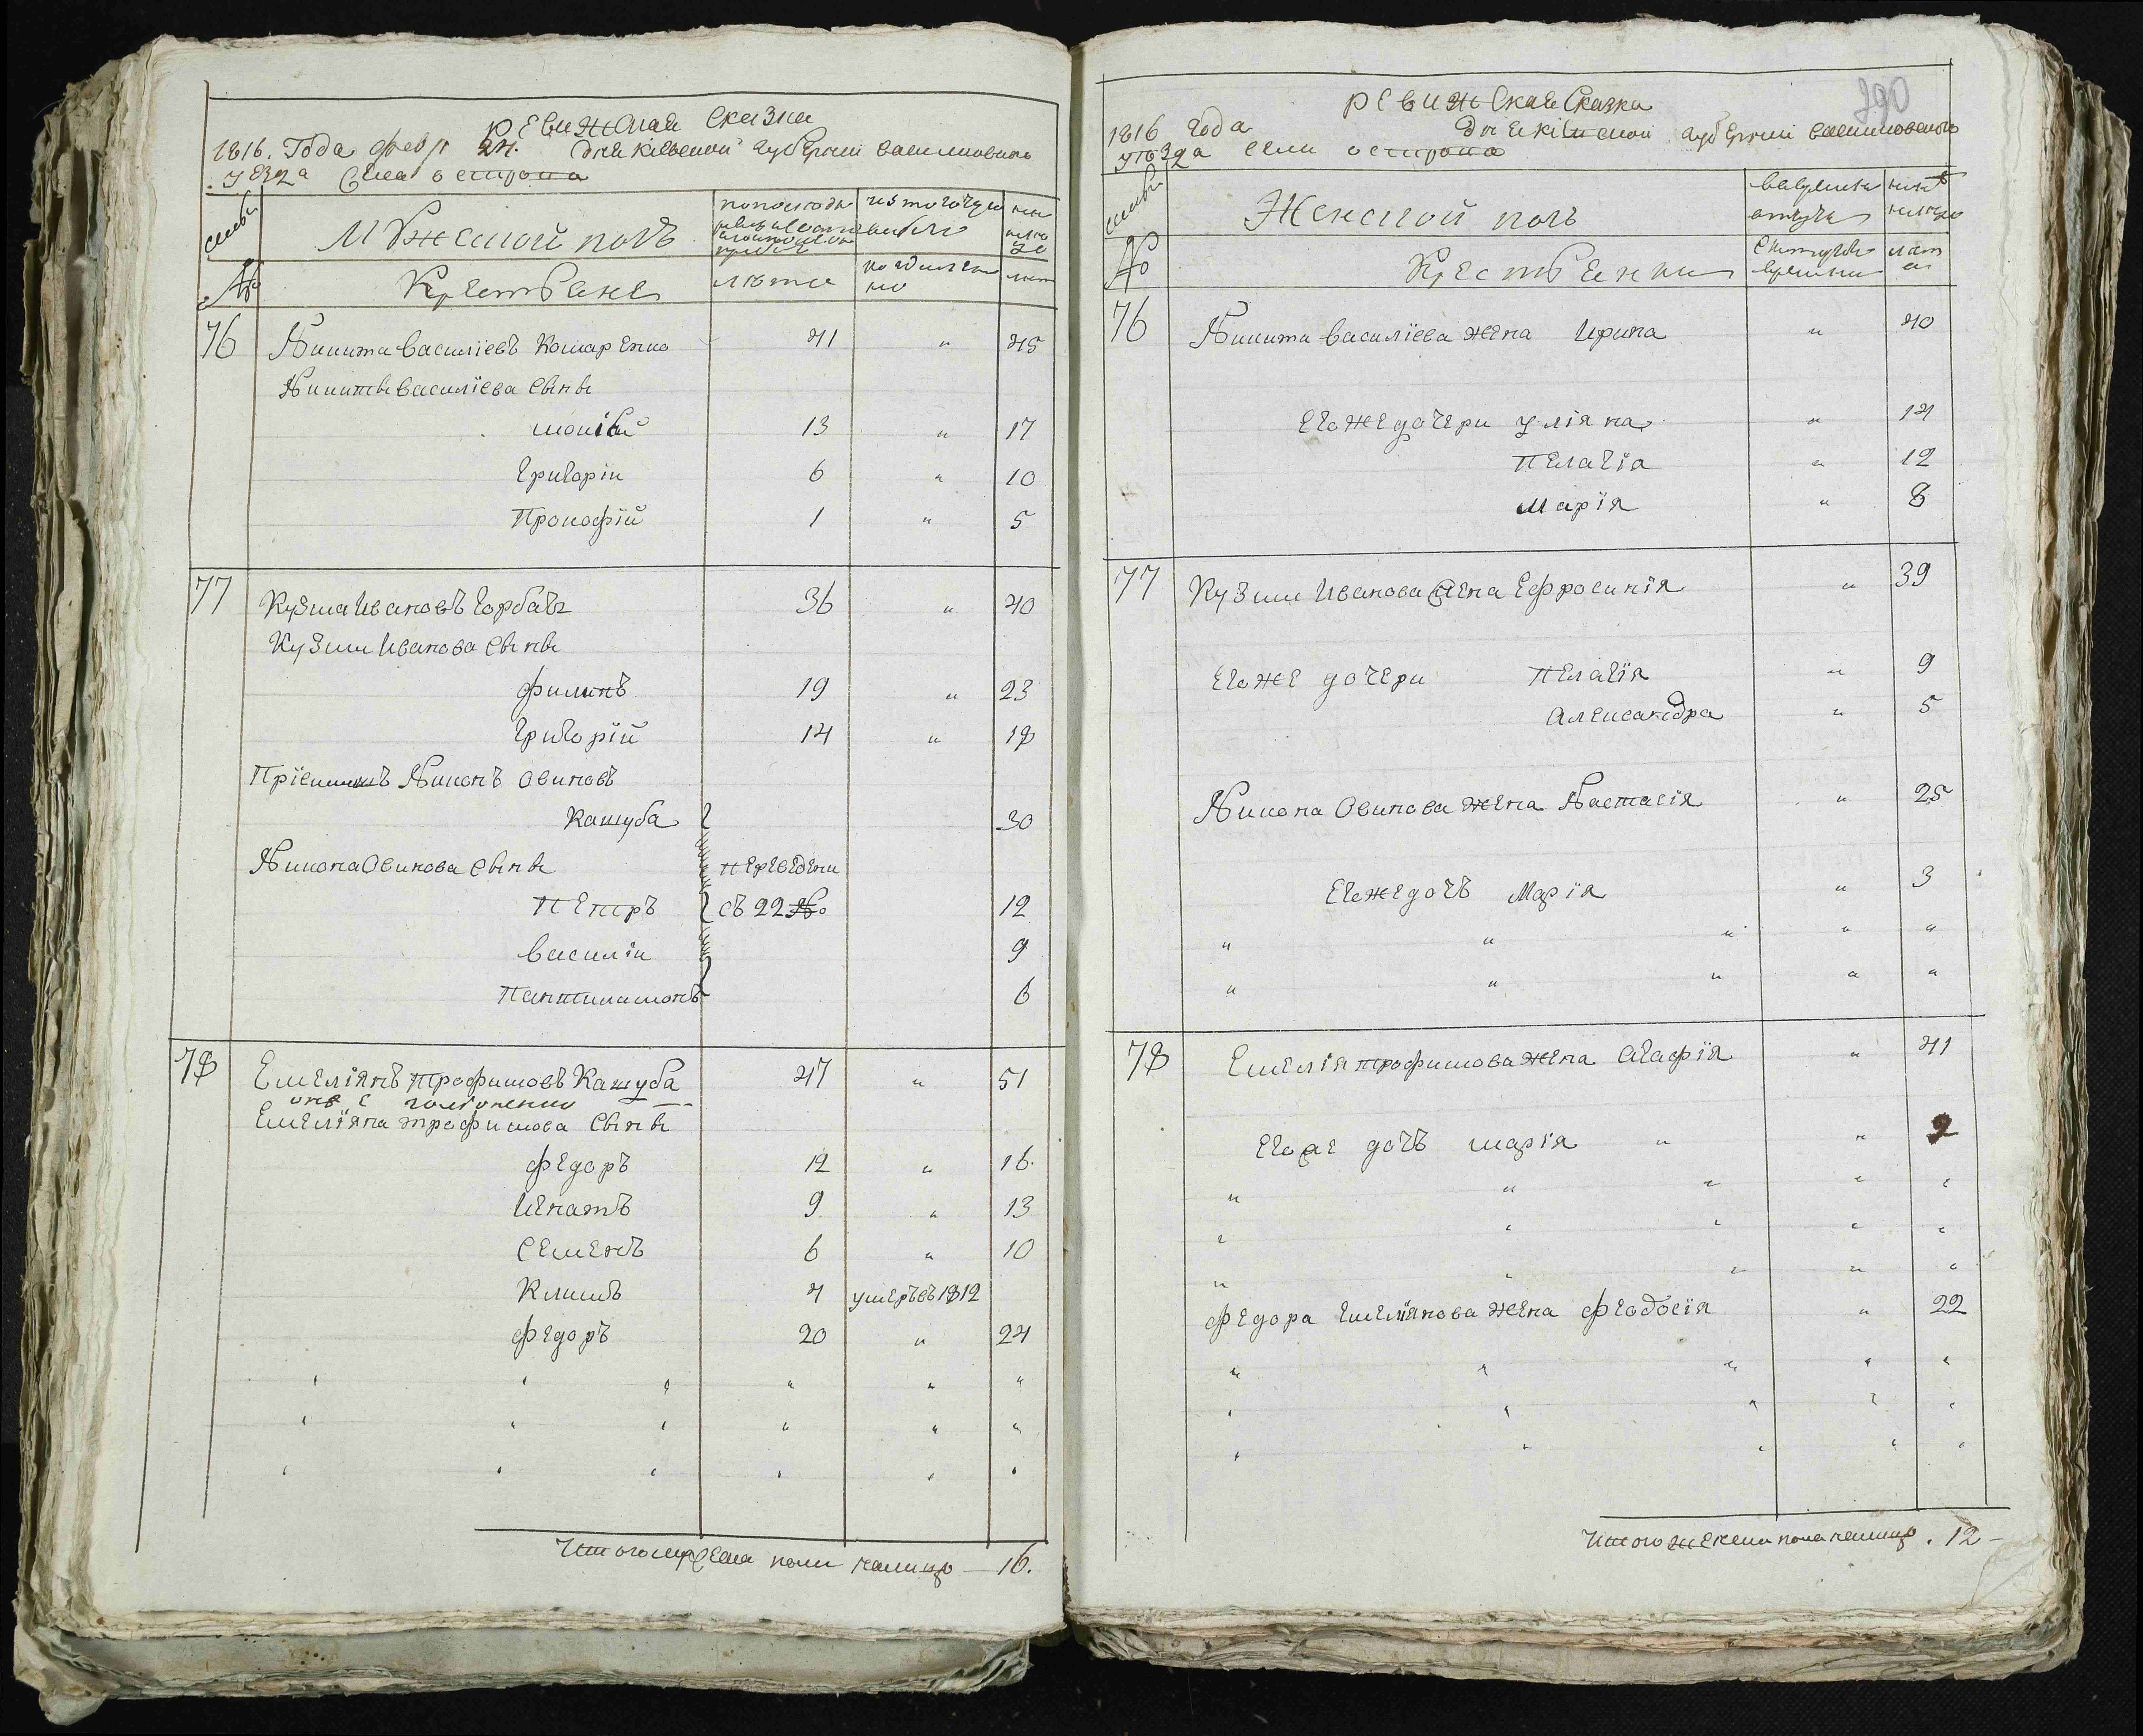 ревижская сказка
1816. Года февр 24. дня кіевской губерніи василковского
уезда села острова
семьи
Мужеской полъ
№
Крестьяне
лета
76 Никита василіевъ Комаренко 41 " 45
Никиты василіева сыны
моисей 13 " 17
Григоріи 6 " 10
Прокофій 1 " 5
77 Кузма Ивановъ Горбачъ 36 " 40
Кузмы Иванова сыны
филипъ 19 " 23
Григорій 14 " 18
Пріемышъ Никонъ Осиповъ
Кашуба 30
Никона Осипова сыны переведены
Петръ съ 22 № 12
василіи 9
Пантилимонъ 6
78 Емеліянъ трофимовъ Кашуба 47 " 51
онъ с
Емеліяна трофимова сыны
федоръ 12 " 16.
Игнатъ 9 " 13
Семенъ 6 " 10
Климъ 4 умеръ въ 1812
федоръ 20 " 24
Итого мужеска пола налицо — 16.
ревижская Сказка
1816 года дня кіевской губерніи василковского
уезда села острова
семьи
Женской полъ
№
Крестьянки
лета
76 Никиты василіева жена Ирина " 40
Его же дочери уліяна " 14
Пелагія " 12
Марія " 8
77 Кузмы Иванова жена Ефросинія " 39
Его же дочери Пелагія " 9
Александра " 5
Никона Осипова жена Настасія " 25
Его же дочь Марія " 3
78 Емелія трофимова жена Агафія " 41
Его же дочь марія " " 2
федора Емеліянова жена феодосія " 22
Итого женска пола налицо . 12 -